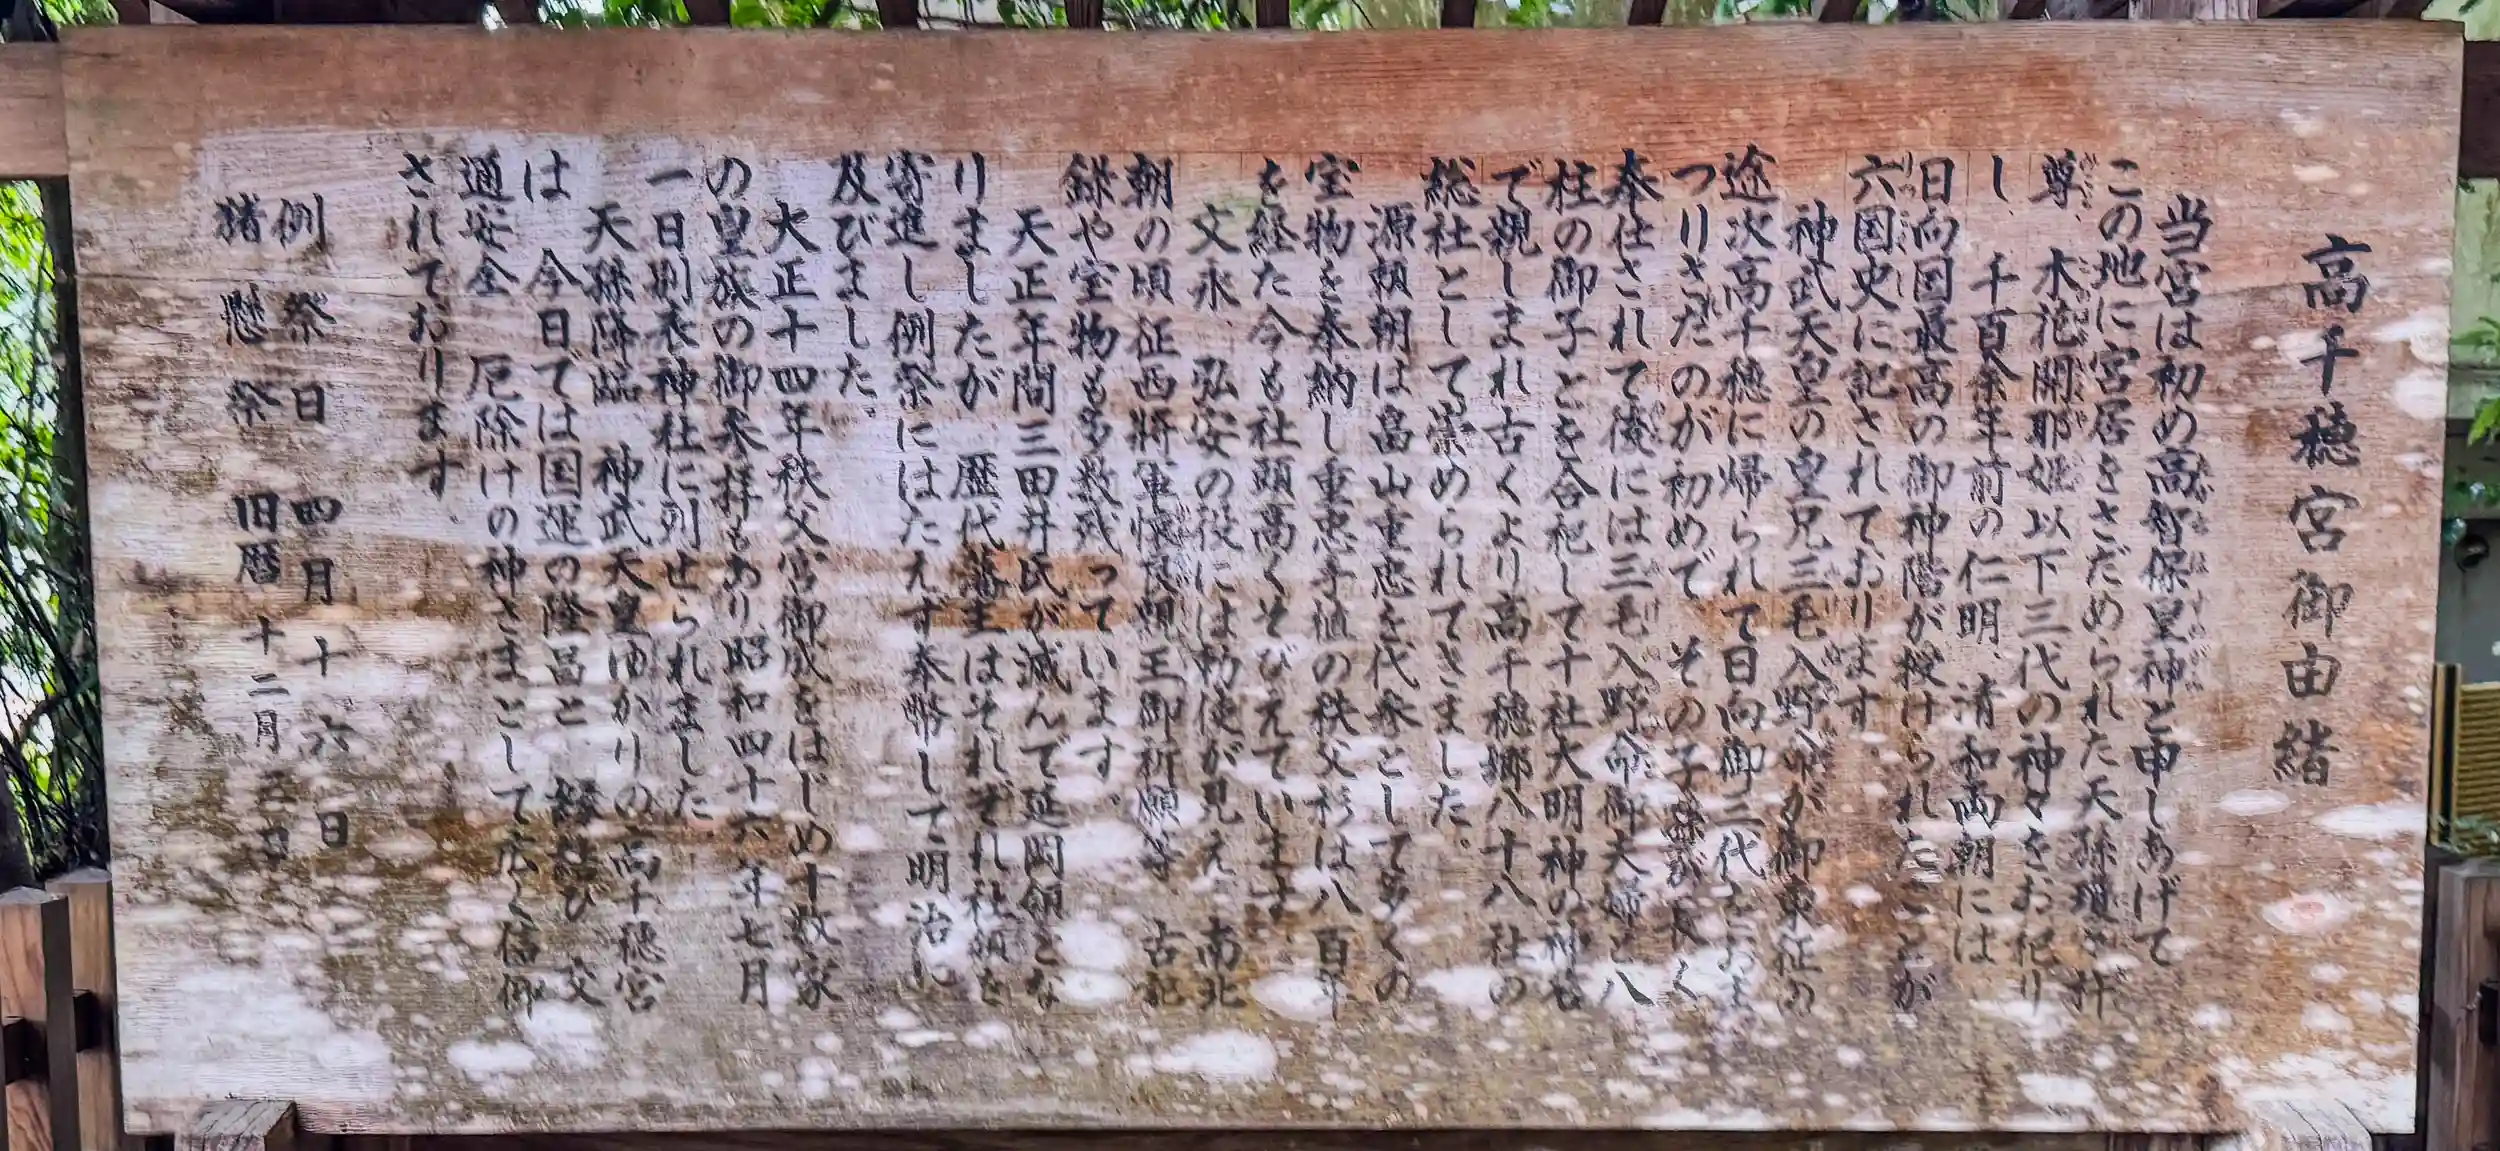 高千穂宮御由緒
当宮は初め高智保皇神と申しあげて
この地に宮居をさだめられた天孫瓊々杵
尊、木花開耶姫以下三代の神々をお祀り
し、千百余年前の仁明、清和両朝には
日向国最高の御神階が授けられたことが
六国史に記されております。
神武天皇の皇兄三毛入野命が御東征の
途次高千穂に帰られて日向御三代をおま
つりさだのが初めで その子孫が長く
奉仕されて後には三毛入野命御夫婦と八
柱の御子とを合祀して十社大明神の神名
で親しまれ古くより高千穂郷八十八社の
総社として崇められてきました。
源頼朝は畠山重忠を代参として多くの
宝物を奉納し重忠手植の秩父杉は八百年
を経た今も社頭高くそびえています。
文永、弘安の役には勅使が見え、南北
朝の頃征西将軍懐良親王御祈願等 古記
録や宝物も多数残っています。
天正年間三田井氏が滅んで延岡領とな
りましたが 歴代藩主はそれぞれ社領を
寄進し例祭にはたえず奉幣して明治に
及びました。
大正十四年秩父宮御成をはじめ十数家
の皇族の御参拝もあり昭和四十六年七月
一日別表神社に列せられました
天孫降臨 神武天皇ゆかりの高千穂宮
は 今日では国運の隆昌と 縁結び 交
通安全 厄除けの神さまとして広く信仰
されております。
例祭日 四月十六日
猪懸祭 旧暦十二月三日